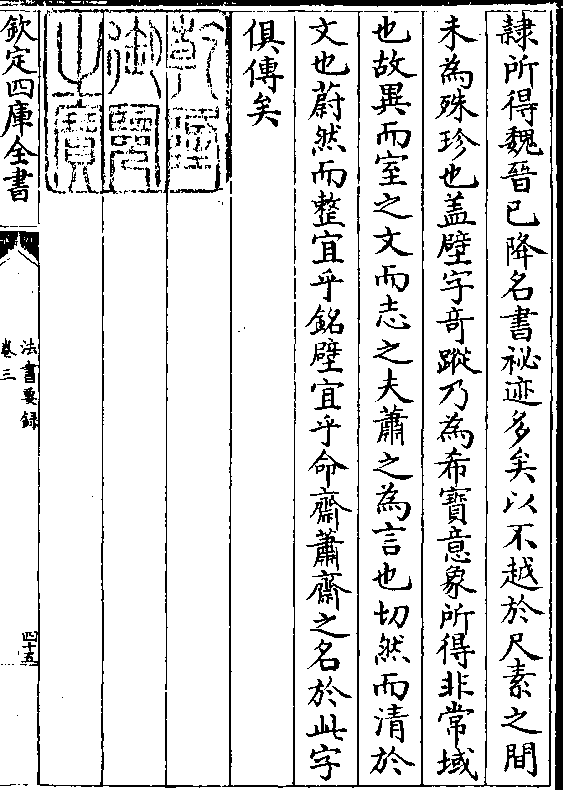 隷所得魏晉已降名書祕迹多矣以不越於尺素之間
未為殊珍也盖壁字竒蹤乃為希寶意象所得非常域
也故異而室之文而志之夫蕭之為言也切然而清於
文也蔚然而整宜乎銘壁宜乎命齋蕭齋之名於此字
俱傳矣
乾隆
御覽
之寳
欽定四庫全書
法書要録
卷三
四十五